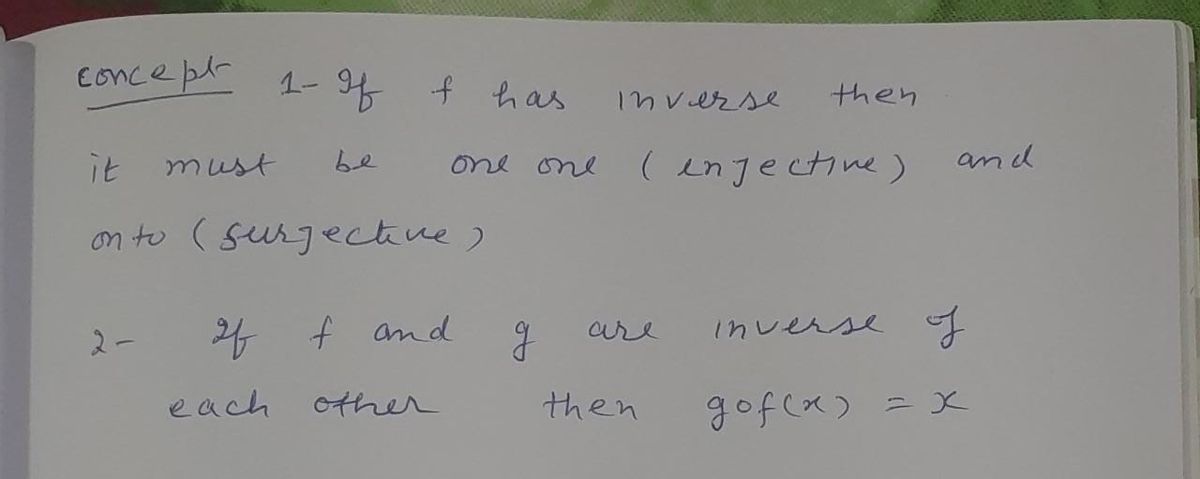 concept 1- If f has inverse then
it must be one one (injective) and
onto (surjective)
2- If f and g are inverse of
each other then gof(x) = x